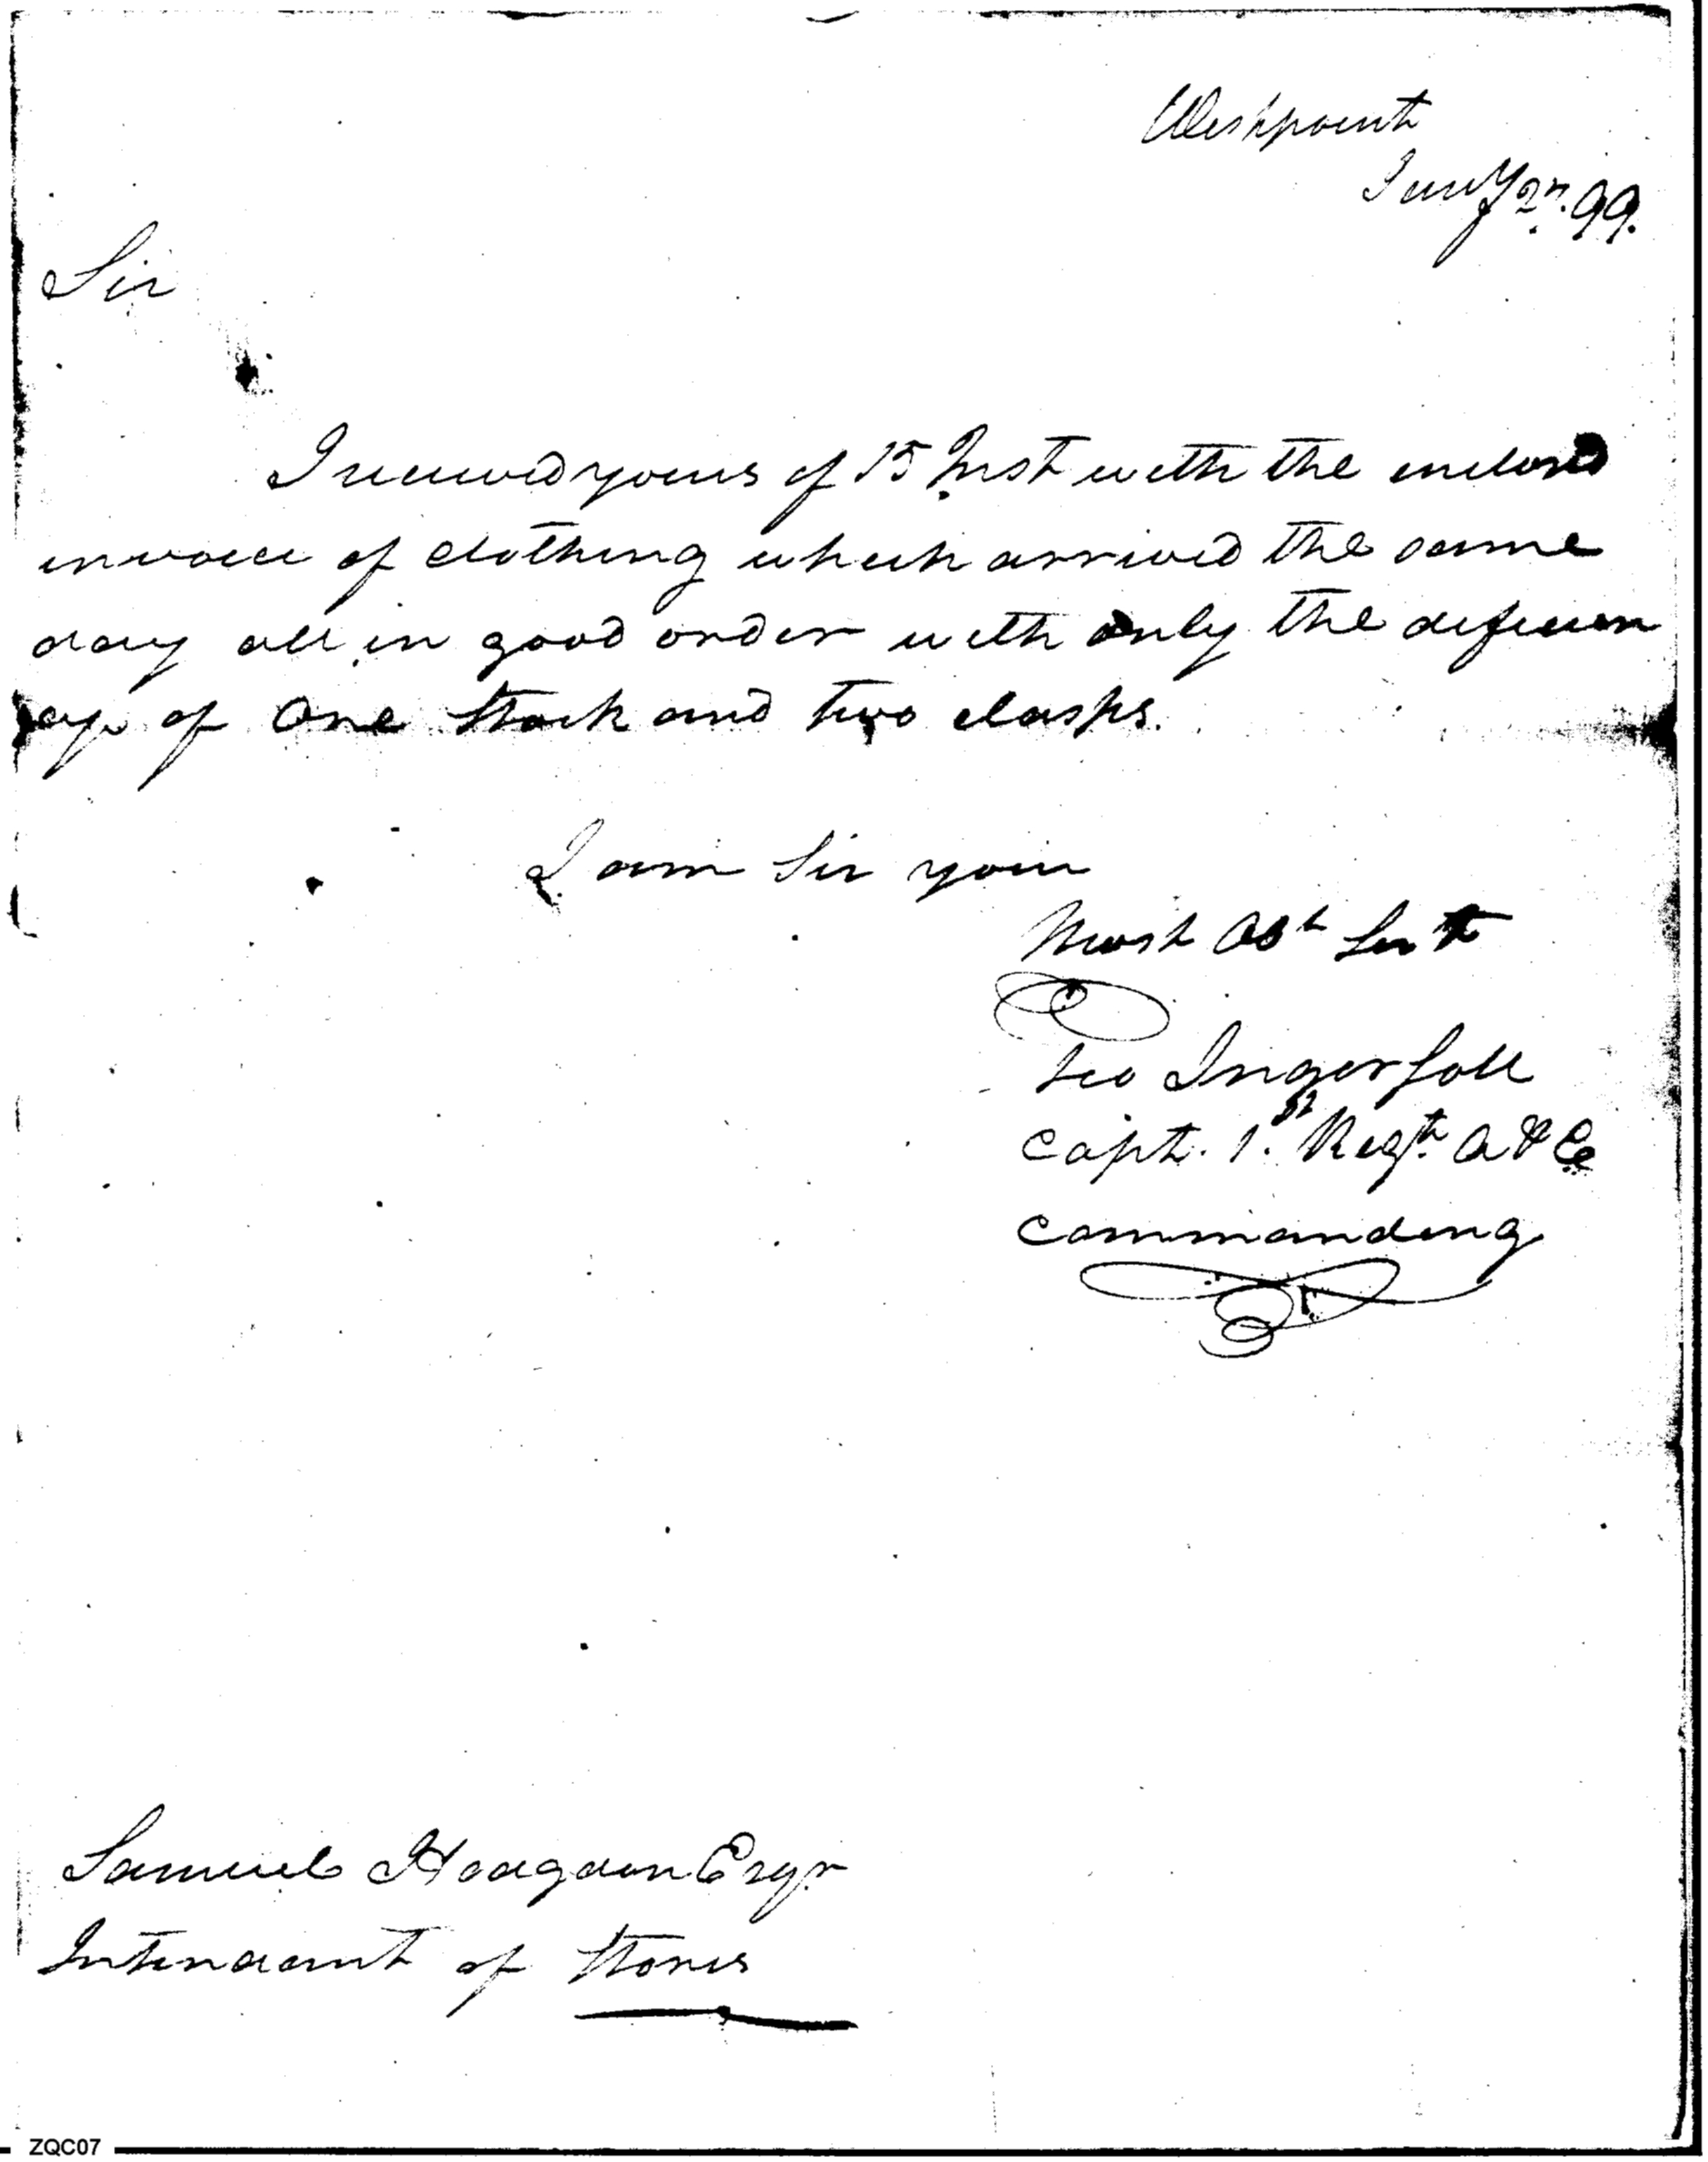 Westpoint
Jany 2n. 99.
Sir
I received yours of 15 Inst with the enclosd
invoice of clothing which arrived the same
day all in good order with only the deficien
cy of One Stock and two clasps.
I am Sir your
Most Obt Sert
Geo Ingersoll
Capt. 1.st Regt. A & E
Commanding
Samuel Hodgdon Esqr
Intendant of Stores
ZQC07